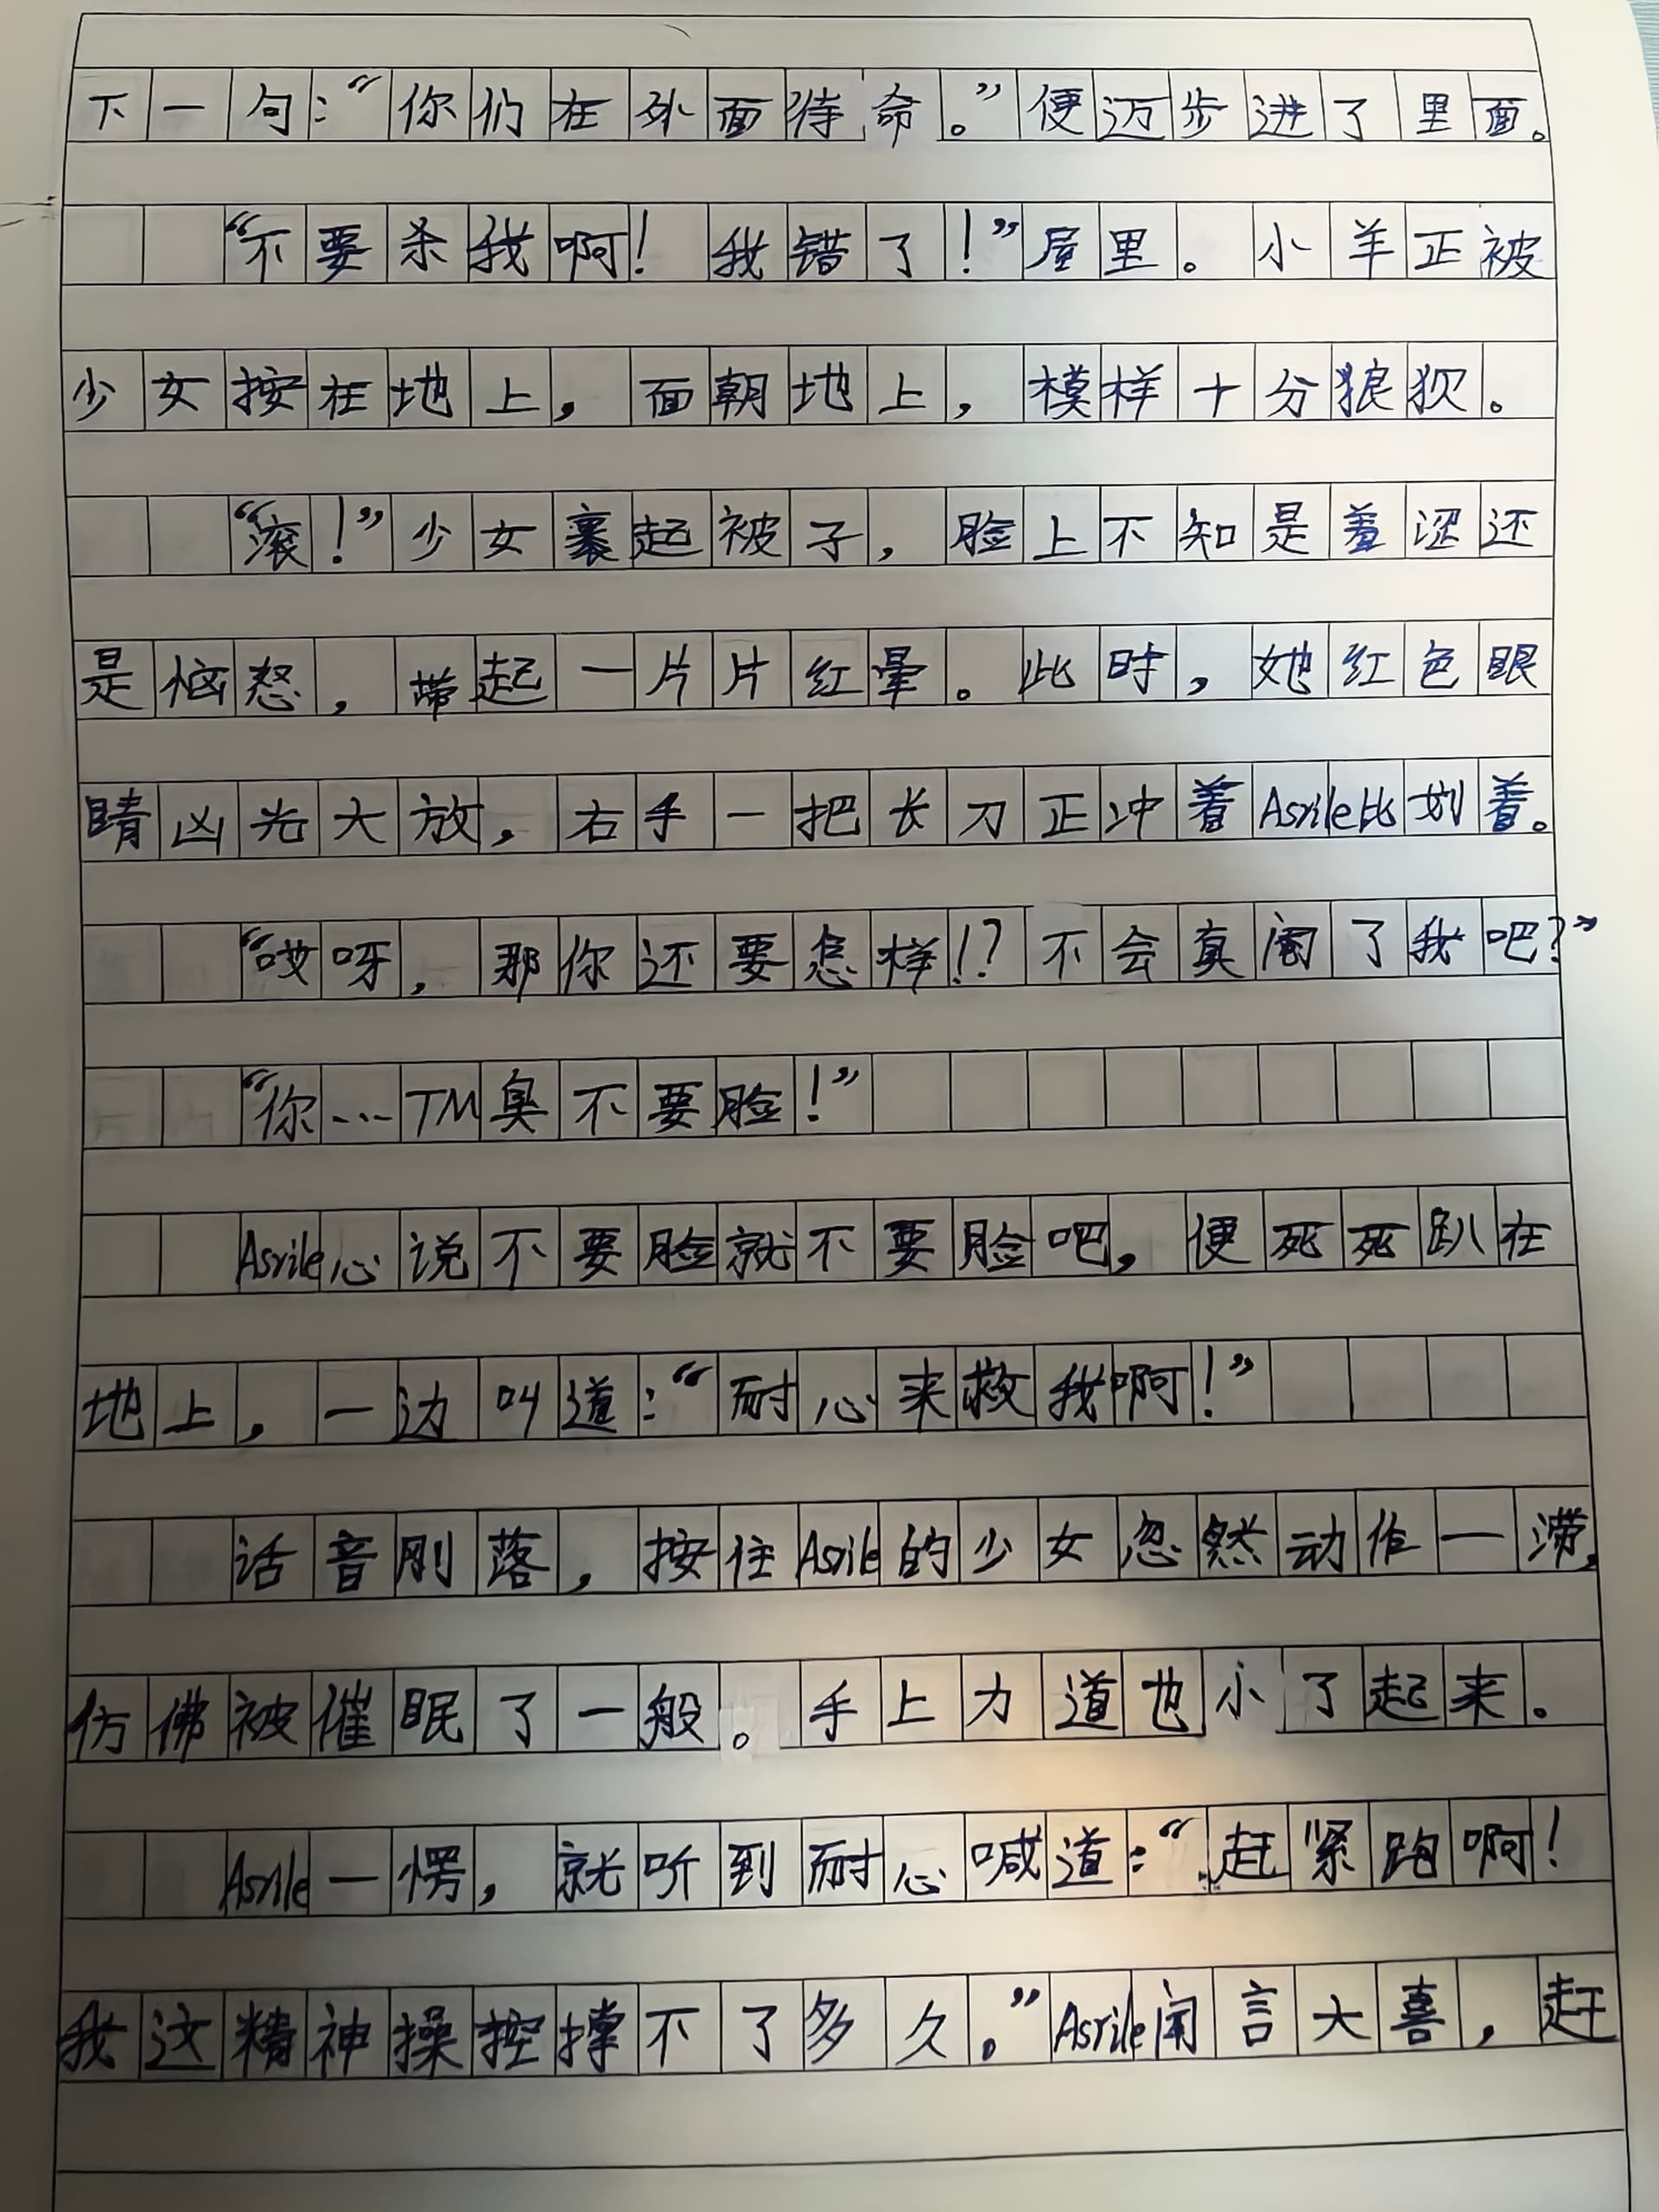 下一句：“你们在外面待命。”便迈步进了里面。
“不要杀我啊！我错了！”屋里。小羊正被
少女按在地上，面朝地上，模样十分狼狈。
“滚！”少女裹起被子，脸上不知是羞涩还
是恼怒，带起一片片红晕。此时，她红色眼
睛凶光大放，右手一把长刀正冲着Asrile比划着。
“哎呀，那你还要怎样！？不会真阉了我吧？”
“你…TM臭不要脸！”
Asrile心说不要脸就不要脸吧，便死死趴在
地上，一边叫道：“耐心来救我啊！”
话音刚落，按住Asrile的少女忽然动作一滞，
仿佛被催眠了一般。手上力道也小了起来。
Asrile一愣，就听到耐心喊道：“赶紧跑啊！
我这精神操控撑不了多久。”Asrile闻言大喜，赶